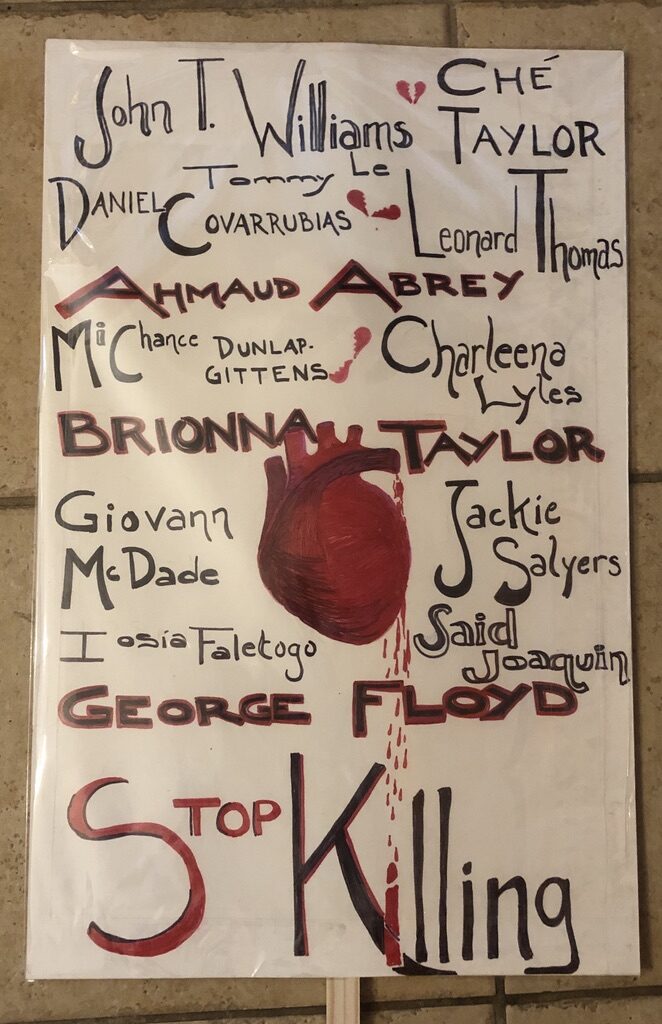 John T. Williams
CHÉ TAYLOR
Tommy Le
DANIEL COVARRUBIAS
Leonard Thomas
AHMAUD ABREY
MiChance DUNLAP-
GITTENS
Charleena
Lyles
BRIONNA TAYLOR
Giovann
McDade
Jackie
Salyers
Iosia Faletogo
Said
Joaquin
GEORGE FLOYD
STOP Killing